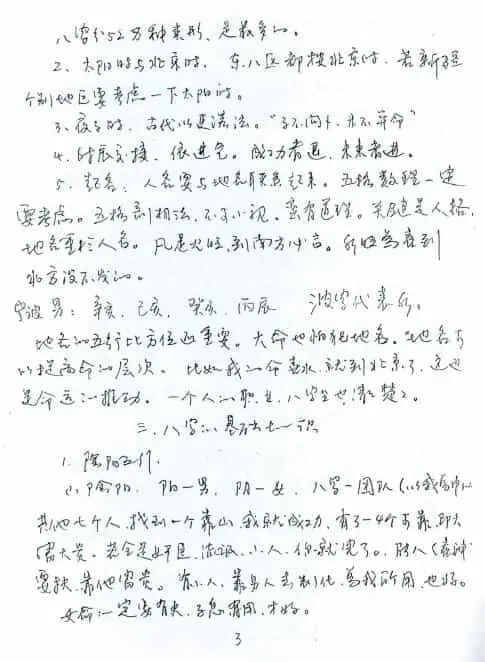 八字有52万种类形，是最多的。
2、太阳时与北京时，东八区都按北京时，若新疆
个别地区要考虑一下太阳时。
3、夜子时，古代以更漏法。“子不问卜，亥不算命”
4、时辰交接，依进气。成功者退，未来者进。
5、起名，人名要与地名联系起来。五格数理一定
要考虑。五格剖相法，不可小视，蛮有道理。关键是人格，
地名重于人名。凡是火旺，到南方必凶。
水方没不发的。
宁波男：辛亥、己亥、癸亥、丙辰 波字代表水。
地名的五行比方位还重要。大命也怕犯地名。地名可
以提高命的层次。比如我的命喜水，就到北京了，这也
是命运的推动。一个人的职业，八字里也清楚。
三、八字的基础知识
1. 阴阳五行
(1)阴阳，阳一男，阴一女，八字一团队（以我为中心
其他七个人，找到一个靠山，我就成功，有了一个可靠，即大
富大贵。若全是小人，你就完了。
要找，靠他富贵。有小人，靠别人去制化，为我所用，也好。
女命：一定要有夫，子息有用，才好。
3